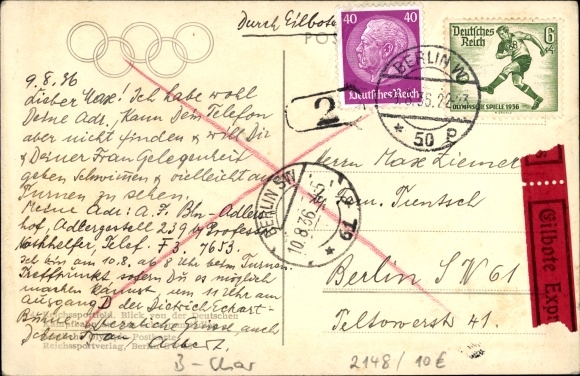 Durch Eilbote
POS
40 40
Deutsches Reich
Deutsches Reich 6+4
OLYMPISCHE SPIELE 1936
BERLIN W
36.22
* 50 p
2
9.8.36
Lieber Max! Ich habe wohl
Deine Adr., kann Dein Telefon
aber nicht finden & will Dir
& Deiner Frau Gelegenheit
geben Schwimmen & vielleicht auch
Turnen zu sehen.
Meine Adr: A. F. Bln-Adlers-
hof, Adlergestell 239 by Professor
Nothhelfer, Telef. F3 7653.
Ich bin am 10.8. ab 8 Uhr beim Turnen.
Treffpunkt sofern Du es möglich
machen kannst, um 11 Uhr am
Ausgang D der Dietrich Eckart-
Bühne. Herzliche Grüsse auch
Deiner Frau
Reichssportfeld. Blick von der Deutschen
Reichssportverlag, Berlin
BERLIN SW
10.8.36
Herrn Max Ziemer
Berlin SW 61
Teltowerstr 41.
Eilbote Exp
B-Char
2148/10€